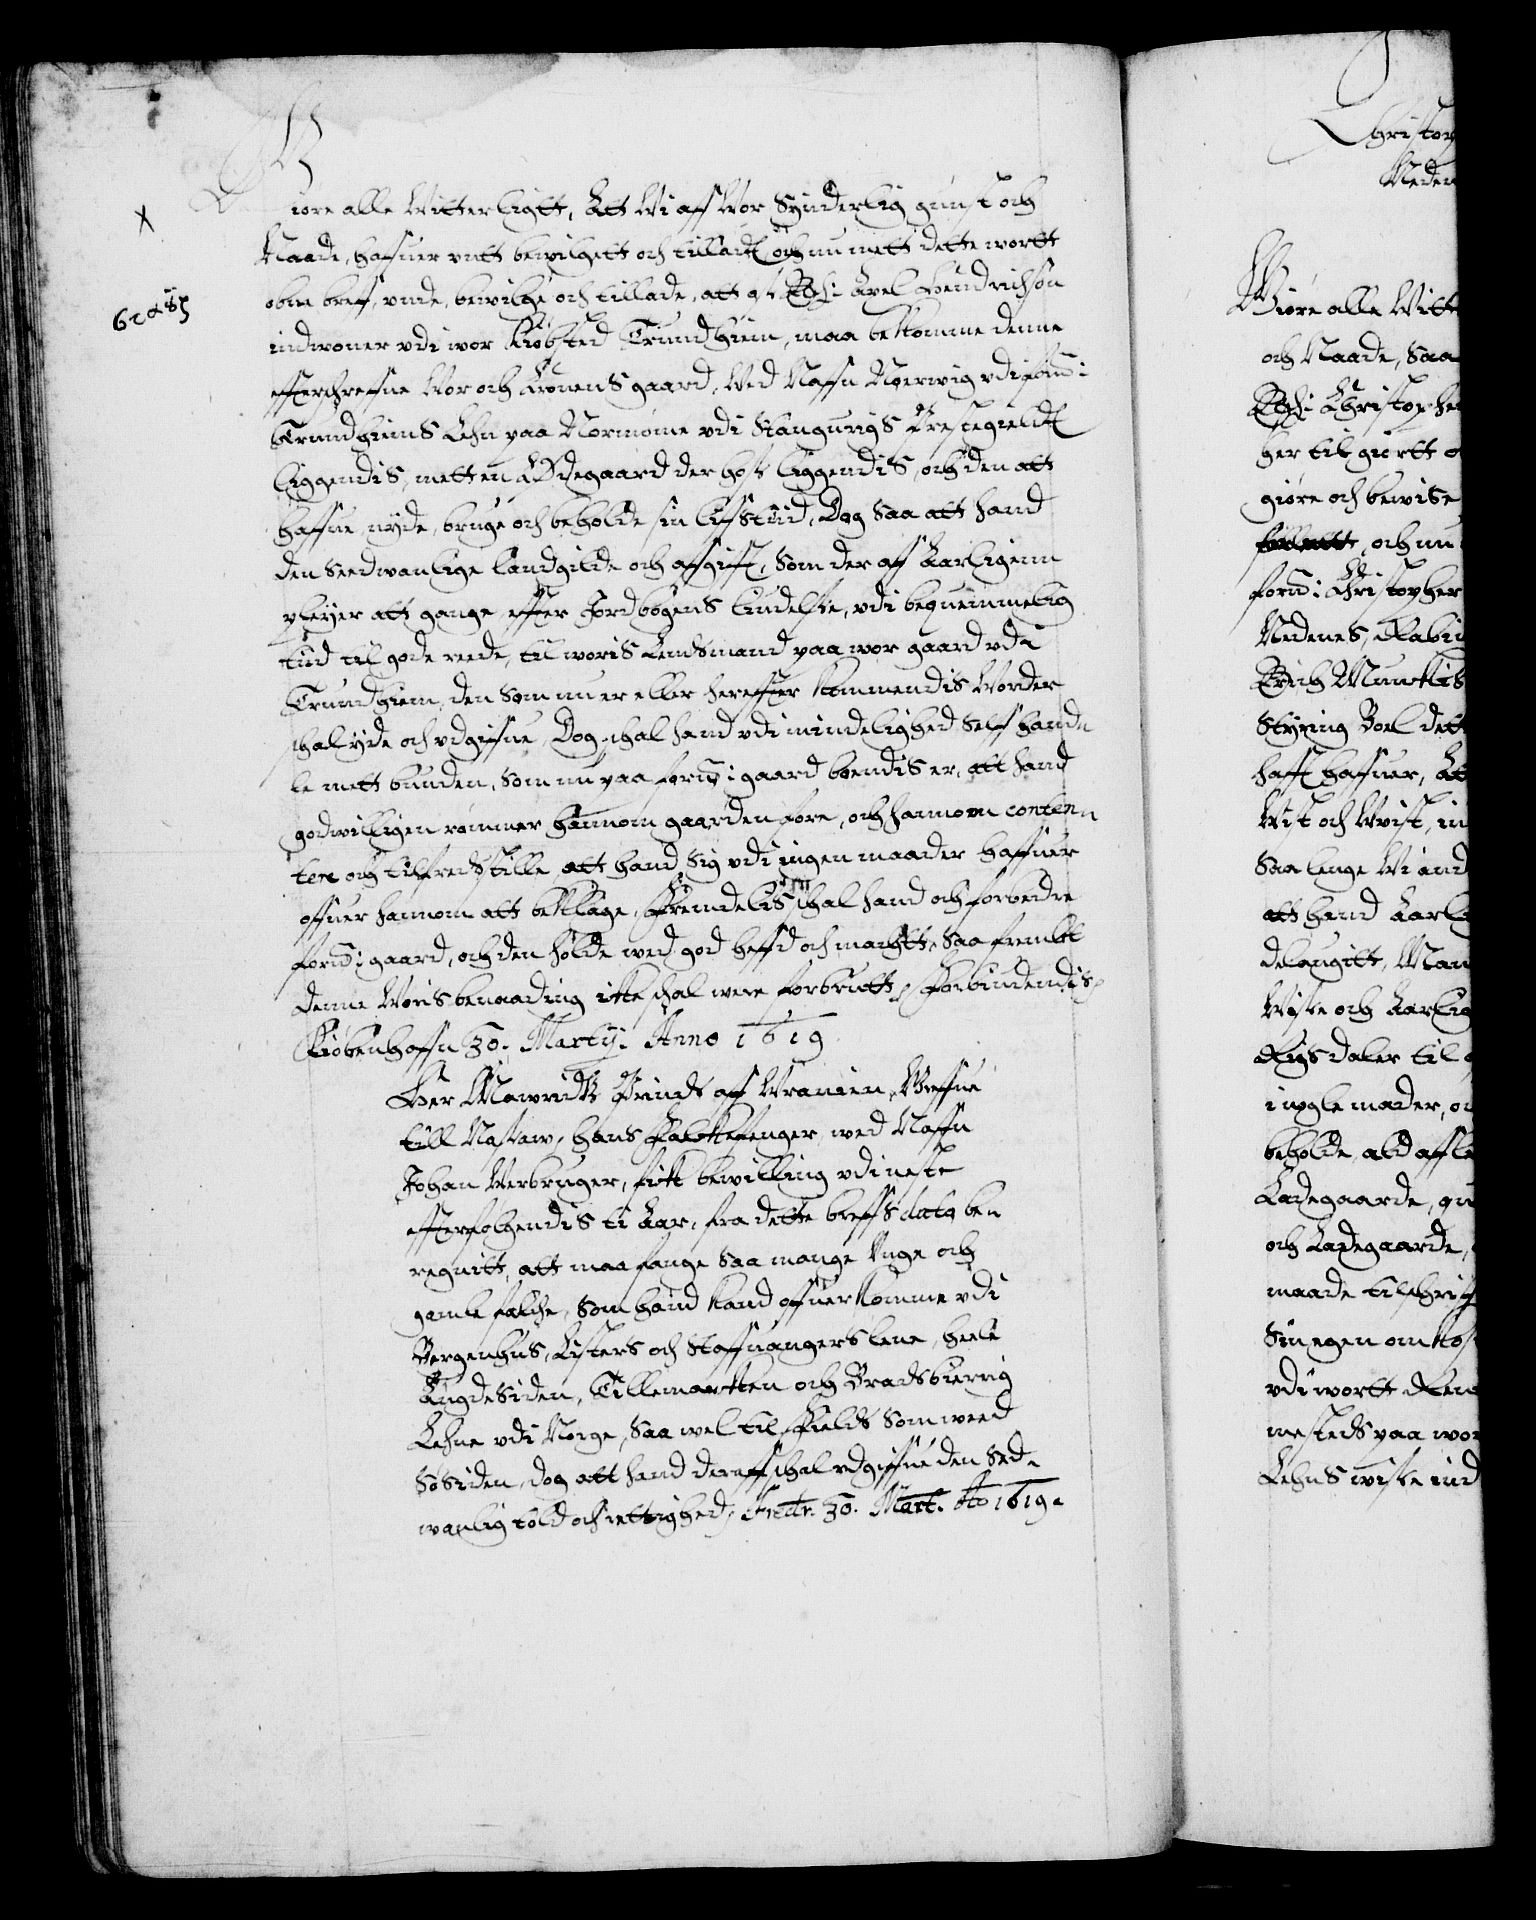 Giøre alle Witterligtt, Att Wi aff Wor Synderlig gunst och
Naade, haffuer vntt bewilgett och tilladt och nu mett dette wortt
obne breff, vnde, bewilge och tillade, att Axel Hendrichsøn
indwoner vdi wor Kiøbsted Trundhiem, maa bekomme denne
effterschreffne Wor och Cronens gaard, Wed Naffn Nøerwig vdi ford:
Trundhiems Lehn paa Normøme vdi Stangwigs Prestegieldt
liggendis, mett en Ødegaard der hoss liggendis, och den att
haffue, nyde, bruge och beholde sin liffstiid, Dog saa att hand
den seedwanlige landgilde och affgifft, som der aff Aarligenn
pleyer att gange effter Jordbogens liudelse, vdi bequemmelig
tiid til gode reede, til woris Lensmand paa wor gaard vdi
Trundhiem, den som nu er eller hereffter kommendis Worder
schal yde och vdgiffue, Dog schal hand vdi mindelighed Self hand-
le mett bunden, som nu paa ford: gaard boendis er, att hand
godwilligen rømmer hannom gaarden fore, och hannom conten-
tere och tilfredsstille, att hand sig vdi ingen maader haffuer
offuer hannom att beklage, Sframdelis schal hand och forbedre
ford: gaard, och den holde wed god heffd och machtt, Saa fremdt
denne Woris benaading icke schal were forbrutt, Forbiudendis
Kiøbenhaffn 30. Martij. Anno 1619
Her Mawridtz Prinds aff Wranien, Greffue
till Nassaw, hans Falckefenger, wed Naffn
Johan Verbruger, fick bewilling vdi neste
effterfølgendis ti Aar, fra dette breffs dato be-
regnitt, att maa fange saa mange Vnge och
gamle falche, som hand kand offuerkomme vdi
Bergenhus, Listers och Staffuangers lene, heele
Augdesiden, Tillemarcken och Bradsbierrig
Lehne vdi Norge, saa wel til Fields som weed
Søsiden, dog att hand deraff schal vdgiffue den sed-
wanlig told och rettighed, 30. Mart. Ao 1619.
Christop
Neden
Giøre alle Witt
och Naade, saa
Christophe
her til giørtt o
giøre och bewise
, och nu
ford: Christopher
Nedenes, Rabi
Erich Munckis
Styring Boel dett
hafft haffuer, Att
Wist och Wist, in
Saa lenge Wi and
att hand Aarli
delaugitt, Man
Wisse och Aarlig
Rigsdaler til
i nogle mader, o
beholde, ald affle
Ladegaarde, qu
och Ladegaarde,
maade tilschri
Sin egen omkos
vdi wortt Ren
mesteds paa wor
Lehns wisse ind